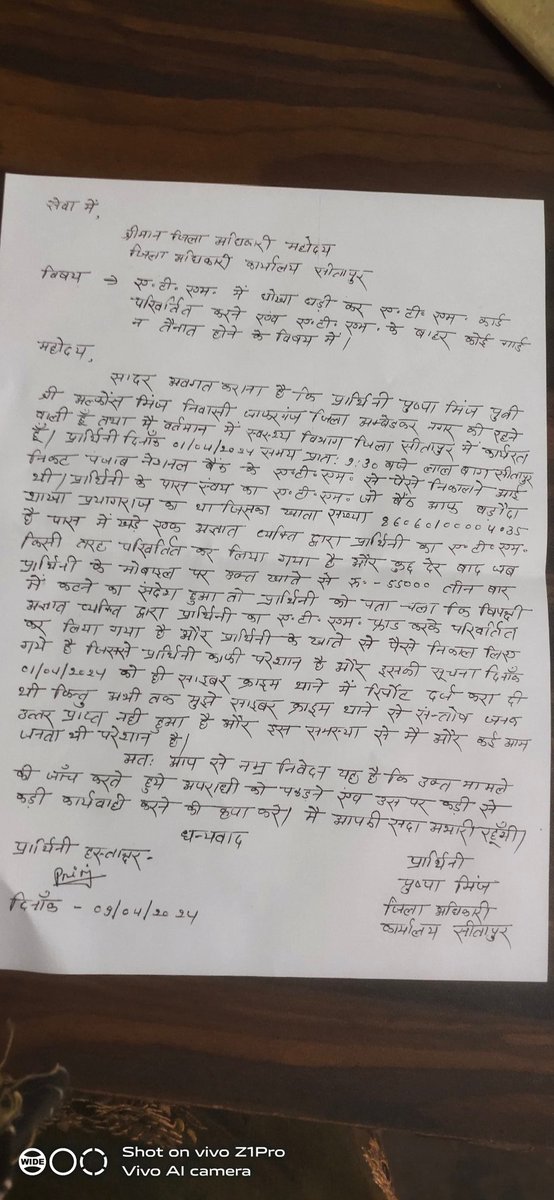 सेवा में,
श्रीमान जिला अधिकारी महोदय
जिला अधिकारी कार्यालय सीतापुर
विषय → ए.टी.एम. में धोखा धड़ी कर ए.टी.एम. कार्ड
परिवर्तित करने एवंम ए.टी.एम. के बाहर कोई गार्ड
न तैनात होने के विषय में।
महोदय,
सादर अवगत कराना है कि प्रार्थिनी पुष्पा मिंज पुत्री
श्री अल्फोंस मिंज निवासी जाफरगंज जिला अम्बेडकर नगर की रहने
वाली है तथा मैं वर्तमान में स्वस्थ्य विभाग जिला सीतापुर में कार्यरत
हूँ। प्रार्थिनी दिनाँक 01/04/2024 समय प्रातः 9:30 बजे लाल बाग सीतापुर
निकट पंजाब नेशनल बैंक के ए.टी.एम. से पैसे निकालने आई
थी। प्रार्थिनी के पास स्वंय का ए.टी.एम. जो बैंक आफ बड़ोदा
शाखा प्रयागराज का था जिसका खाता संख्या 26060100004035
है पास में खड़े एक अज्ञात व्यक्ति द्वारा प्रार्थिनी का ए.टी.एम.
किसी तरह परिवर्तित कर लिया गया है और कुछ देर बाद जब
प्रार्थिनी के मोबाइल पर उक्त खाते से रू:- 55000 तीन बार
में कटने का संदेश हुआ तो प्रार्थिनी को पता चला कि विपक्षी
अज्ञात व्यक्ति द्वारा प्रार्थिनी का ए.टी.एम. फ्राड करके परिवर्तित
कर लिया गया है और प्रार्थिनी के खाते से पैसे निकाल लिए
गये है जिससे प्रार्थिनी काफी परेशान है और इसकी सूचना दिनाँक
01/04/2024 को ही साइबर क्राइम थाने में रिपोर्ट दर्ज करा दी
थी किन्तु अभी तक मुझे साइबर क्राइम थाने से संन्तोष जनक
उत्तर प्राप्त नही हुआ है और इस समस्या से मै और कई आम
जनता भी परेशान है।
अतः आप से नम्र निवेदन यह है कि उक्त मामले
की जाँच करते हुये अपराधी को पकड़ने एंव उस पर कड़ी से
कड़ी कार्यवाही करने की कृपा करे। मै आपकी सदा आभारी रहूँगी।
धन्यवाद
प्रार्थिनी हस्ताक्षर-
दिनाँक - 09/04/2024
प्रार्थिनी
पुष्पा मिंज
जिला अधिकारी
कार्यालय सीतापुर
WIDE
Shot on vivo Z1Pro
Vivo AI camera